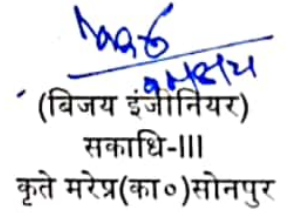 (विजय इंजीनियर)
सकाधि-III
कृते मरेप्र(का०)सोनपुर